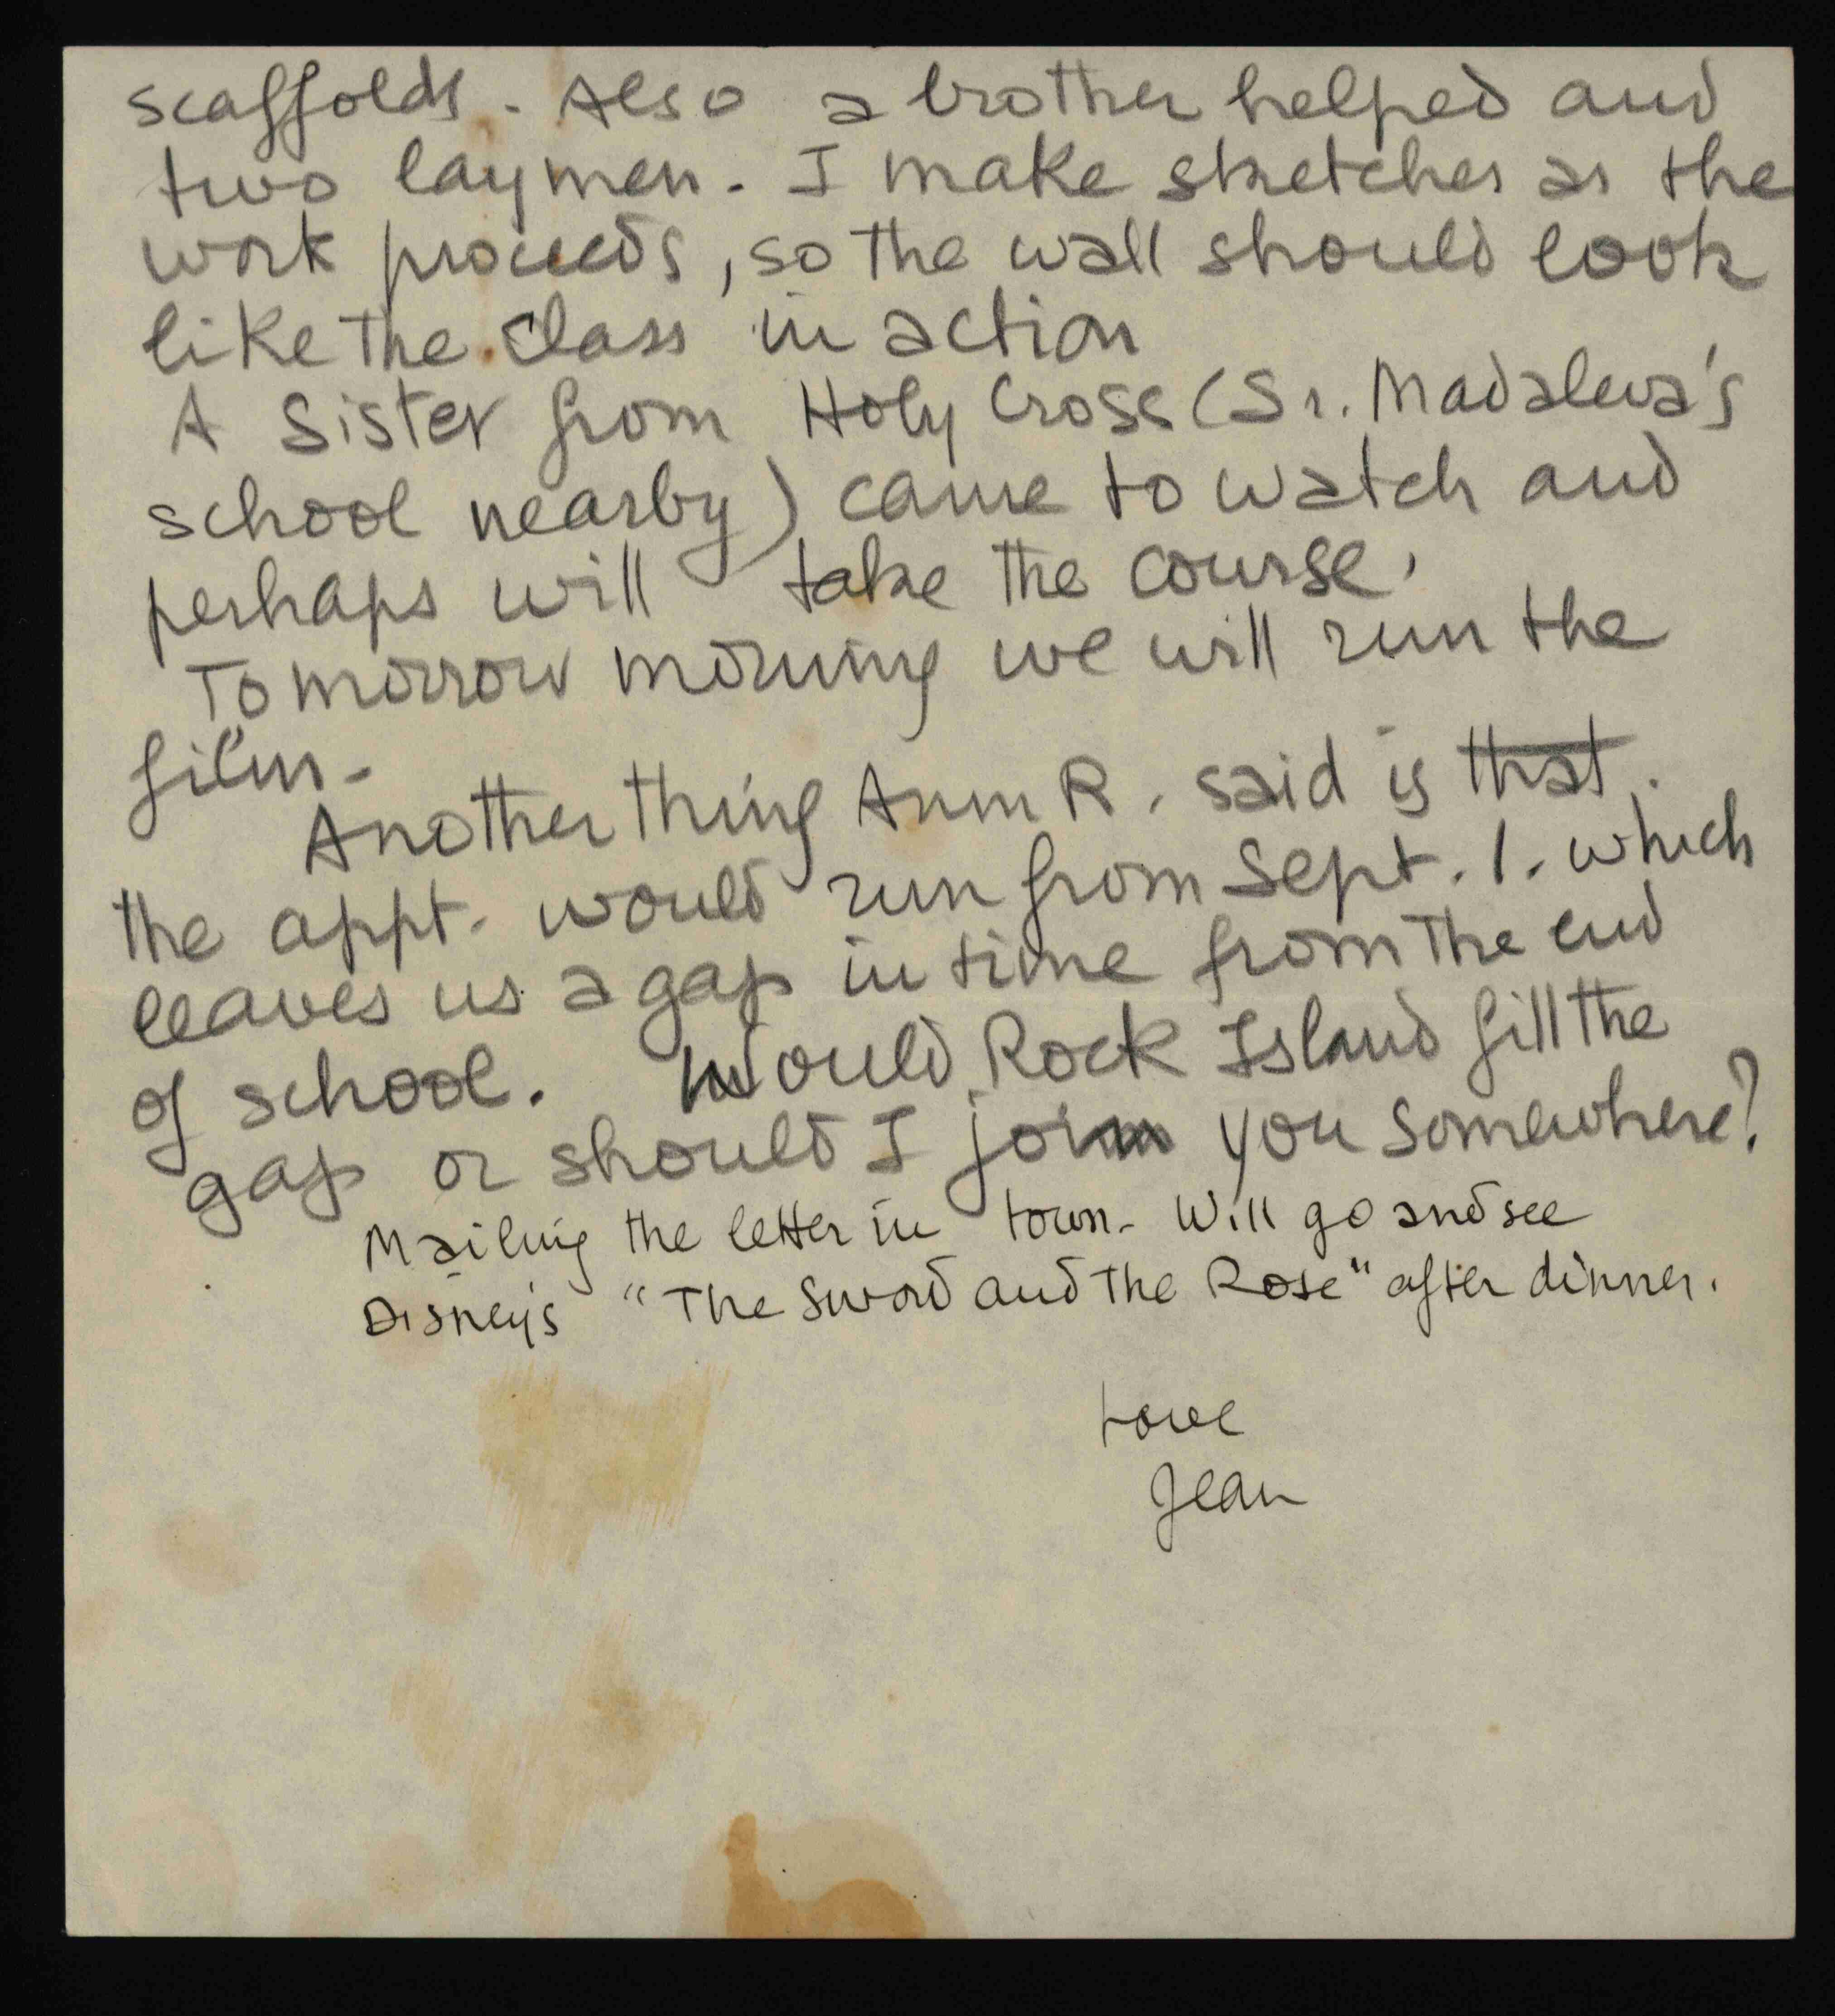 scaffolds. Also a brother helped and
two laymen. I make sketches as the
work proceeds, so the wall should look
like the class in action
A Sister from Holy Cross (Sr. Madaleva's
school nearby) came to watch and
perhaps will take the course.
Tomorrow morning we will run the
film.
Another thing Ann R. said is that
the appt. would run from Sept. 1. which
leaves us a gap in time from the end
of school. Would Rock Island fill the
gap or should I join you somewhere?
Mailing the letter in town. Will go and see
Disney's "The Sword and the Rose" after dinner.
Love
Jean